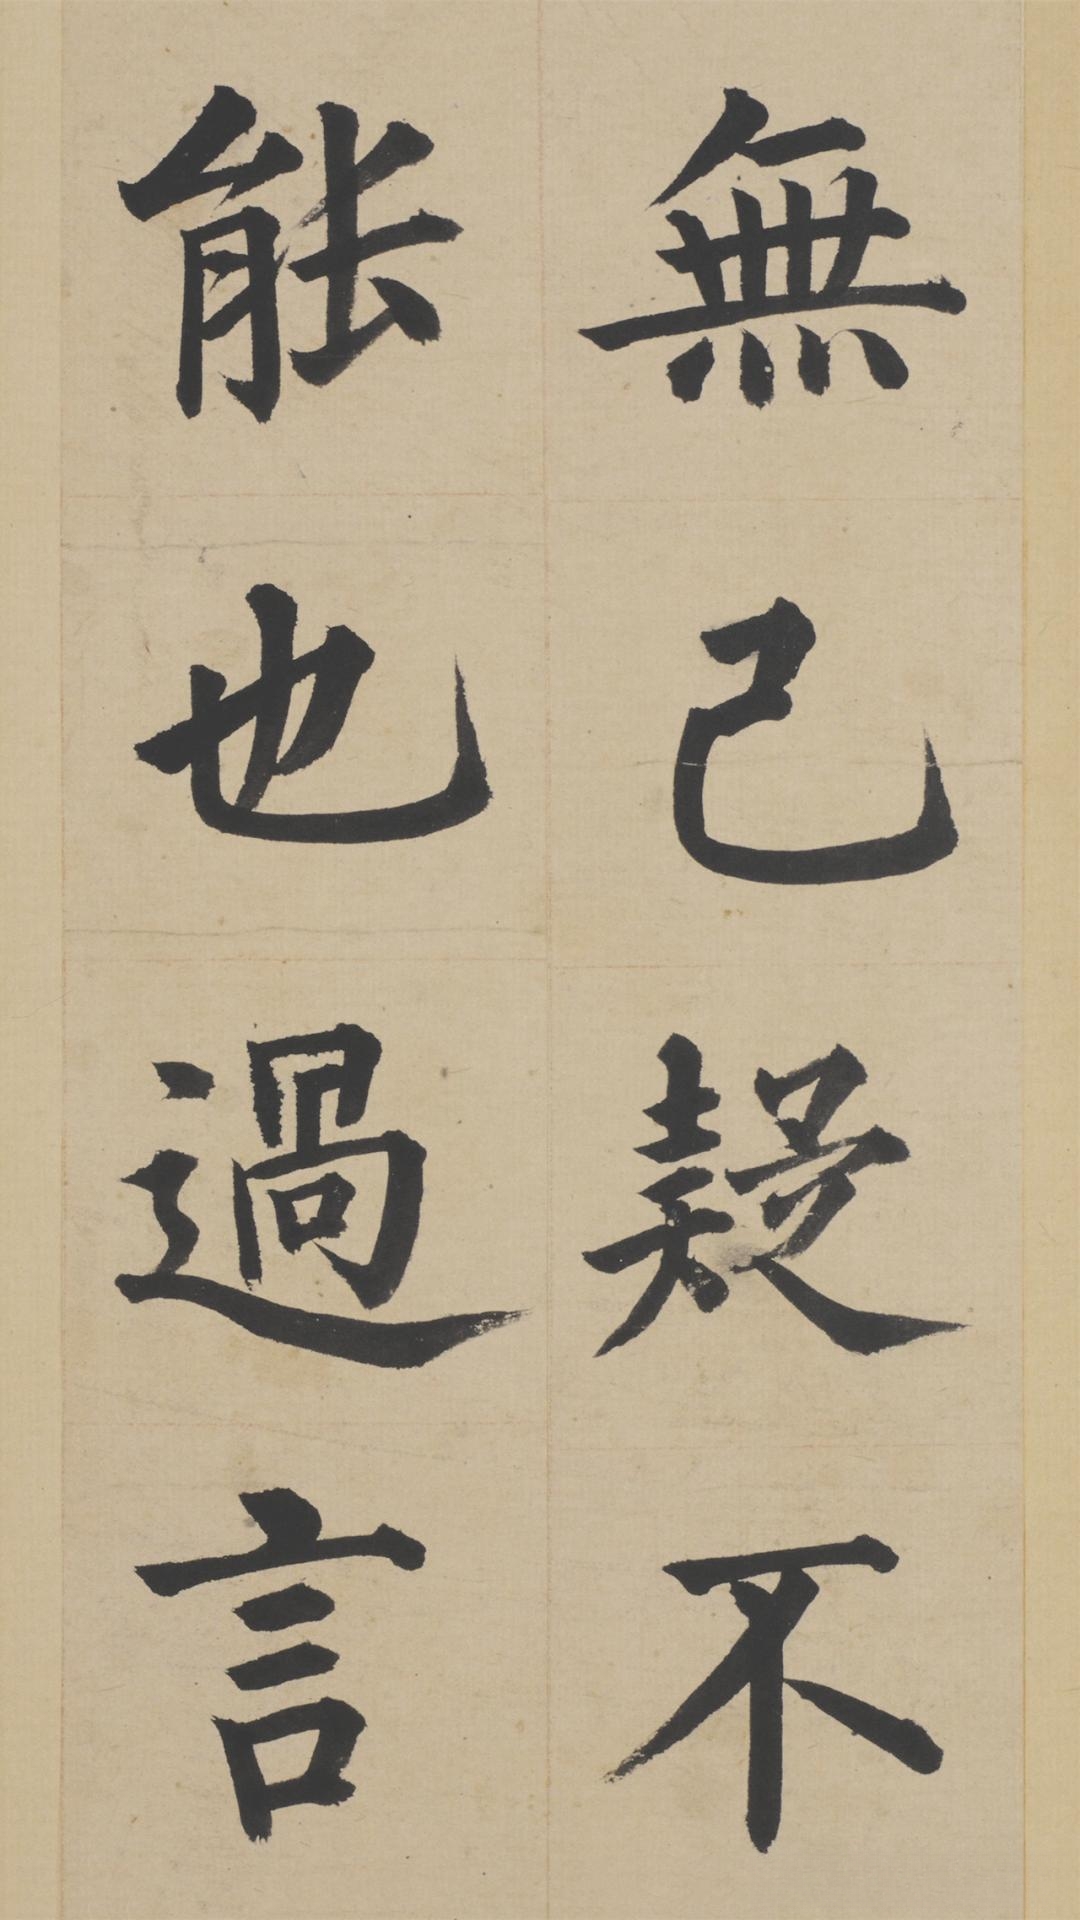 無己疑不
能也過言